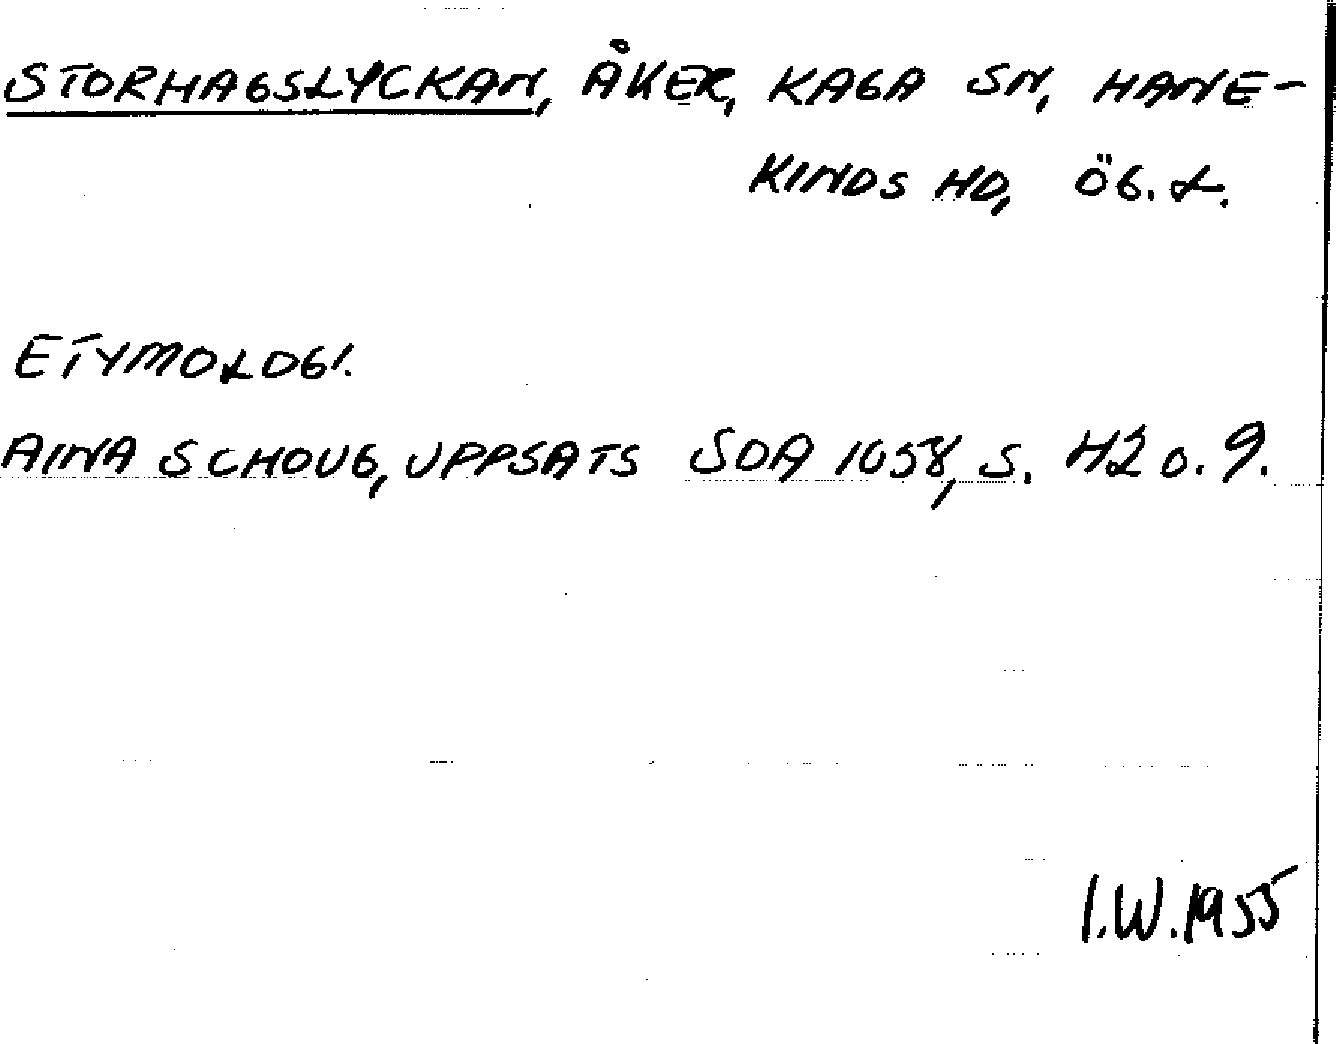 STORHAGSLYCKAN, ÅKER, KAGA SN, HANE-
KINDS HD, ÖG. L.
ETYMOLOGI.
AINA SCHOUG, UPPSATS SOA 1058, S. 42 o. 9.
I.W. 1955